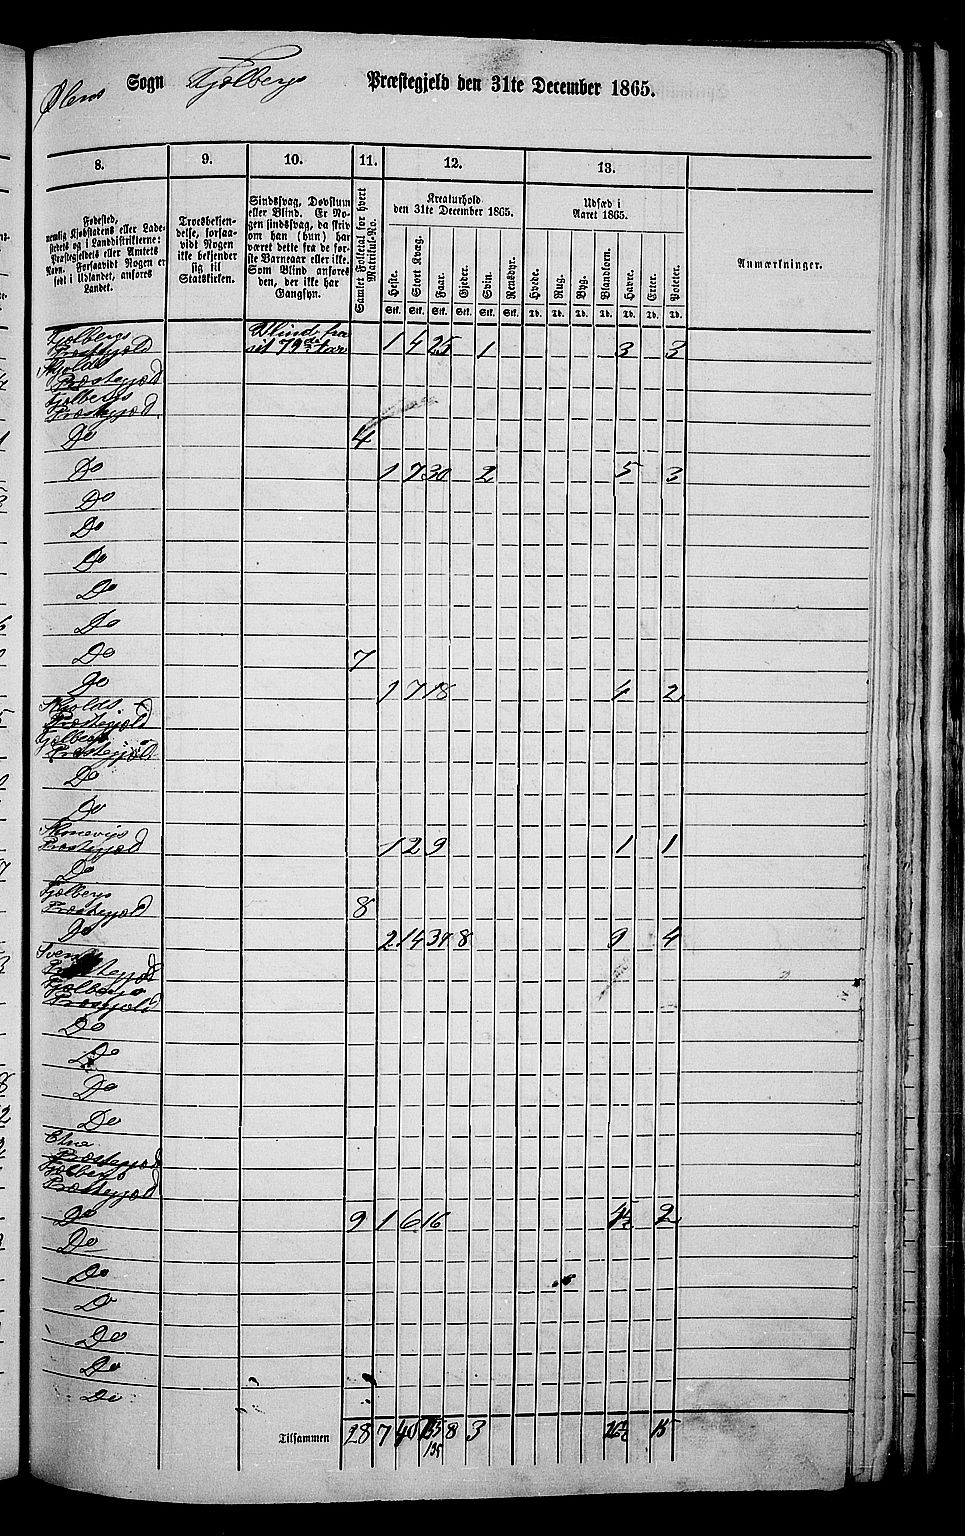 Ølens Sogn Fjelbergs Præstegjeld den 31te December 1865.
8. 9. 10. 11. 12. 13.
Fødested,
nemlig Kjøbstadens eller Lade-
stedets og i Landdistrikterne:
Præstegjeldets eller Amtets
Navn. Forsaavidt Nogen er
født i Udlandet, anføres
Landet.
Troesbekjen-
delse, forsaa-
vidt Nogen
ikke bekjender
sig til
Statskirken.
Sindssvag, Døvstum
eller Blind. Er No-
gen sindssvag, da skriv
om han (hun) har
været dette fra de før-
ste Barneaar eller ikke.
Som Blind anføres
den, der ikke har
Gangsyn.
Samlet Folketal for hvert
Matricul-No.
Kreaturhold
den 31te December 1865.
Heste. Stort Kvæg. Faar. Gjeder. Sviin. Rensdyr.
Stk. Stk. Stk. Stk. Stk. Stk.
Udsæd i
Aaret 1865.
Hvede. Rug. Byg. Blandkorn. Havre. Erter. Poteter.
Td. Td. Td. Td. Td. Td. Td.
Anmærkninger.
Fjelbergs Blind fra
Præstegjeld sit 79de Aar 1 4 25 1 3 3
Skjolds
Præstegjeld
Fjelbergs
Præstegjeld
Do 4
Do 1 7 30 2 5 3
Do
Do
Do
Do
Do
Do 7
Do 1 7 18 4 2
Skjolds
Præstegjeld
Fjelbergs
Præstegjeld
Do
Do
Skonevigs
Præstegjeld 1 2 9 1 1
Do
Fjelbergs
Præstegjeld 8
Do 2 14 37 8 9 4
Præstegjeld
Fjelbergs
Præstegjeld
Do
Do
Do
Do
Etne
Præstegjeld
Fjelbergs
Præstegjeld
Do 9 1 6 16 4½ 2
Do
Do
Do
Do
Do
Do
Tilsammen 28 7 40 135 8 3 26½ 15
135